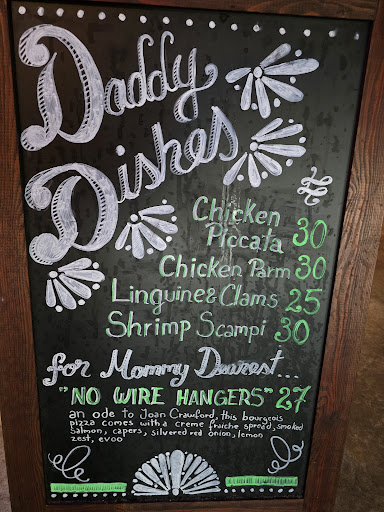 Daddy
Dishes
Chicken
Piccata 30
Chicken Parm 30
Linguine & Clams 25
Shrimp Scampi 30
for Mommy Dearest...
"NO WIRE HANGERS" 27
an ode to Joan Crawford, this bourgeois
pizza comes with a creme fraiche spread, smoked
salmon, capers, silvered red onion, lemon
zest, evoo